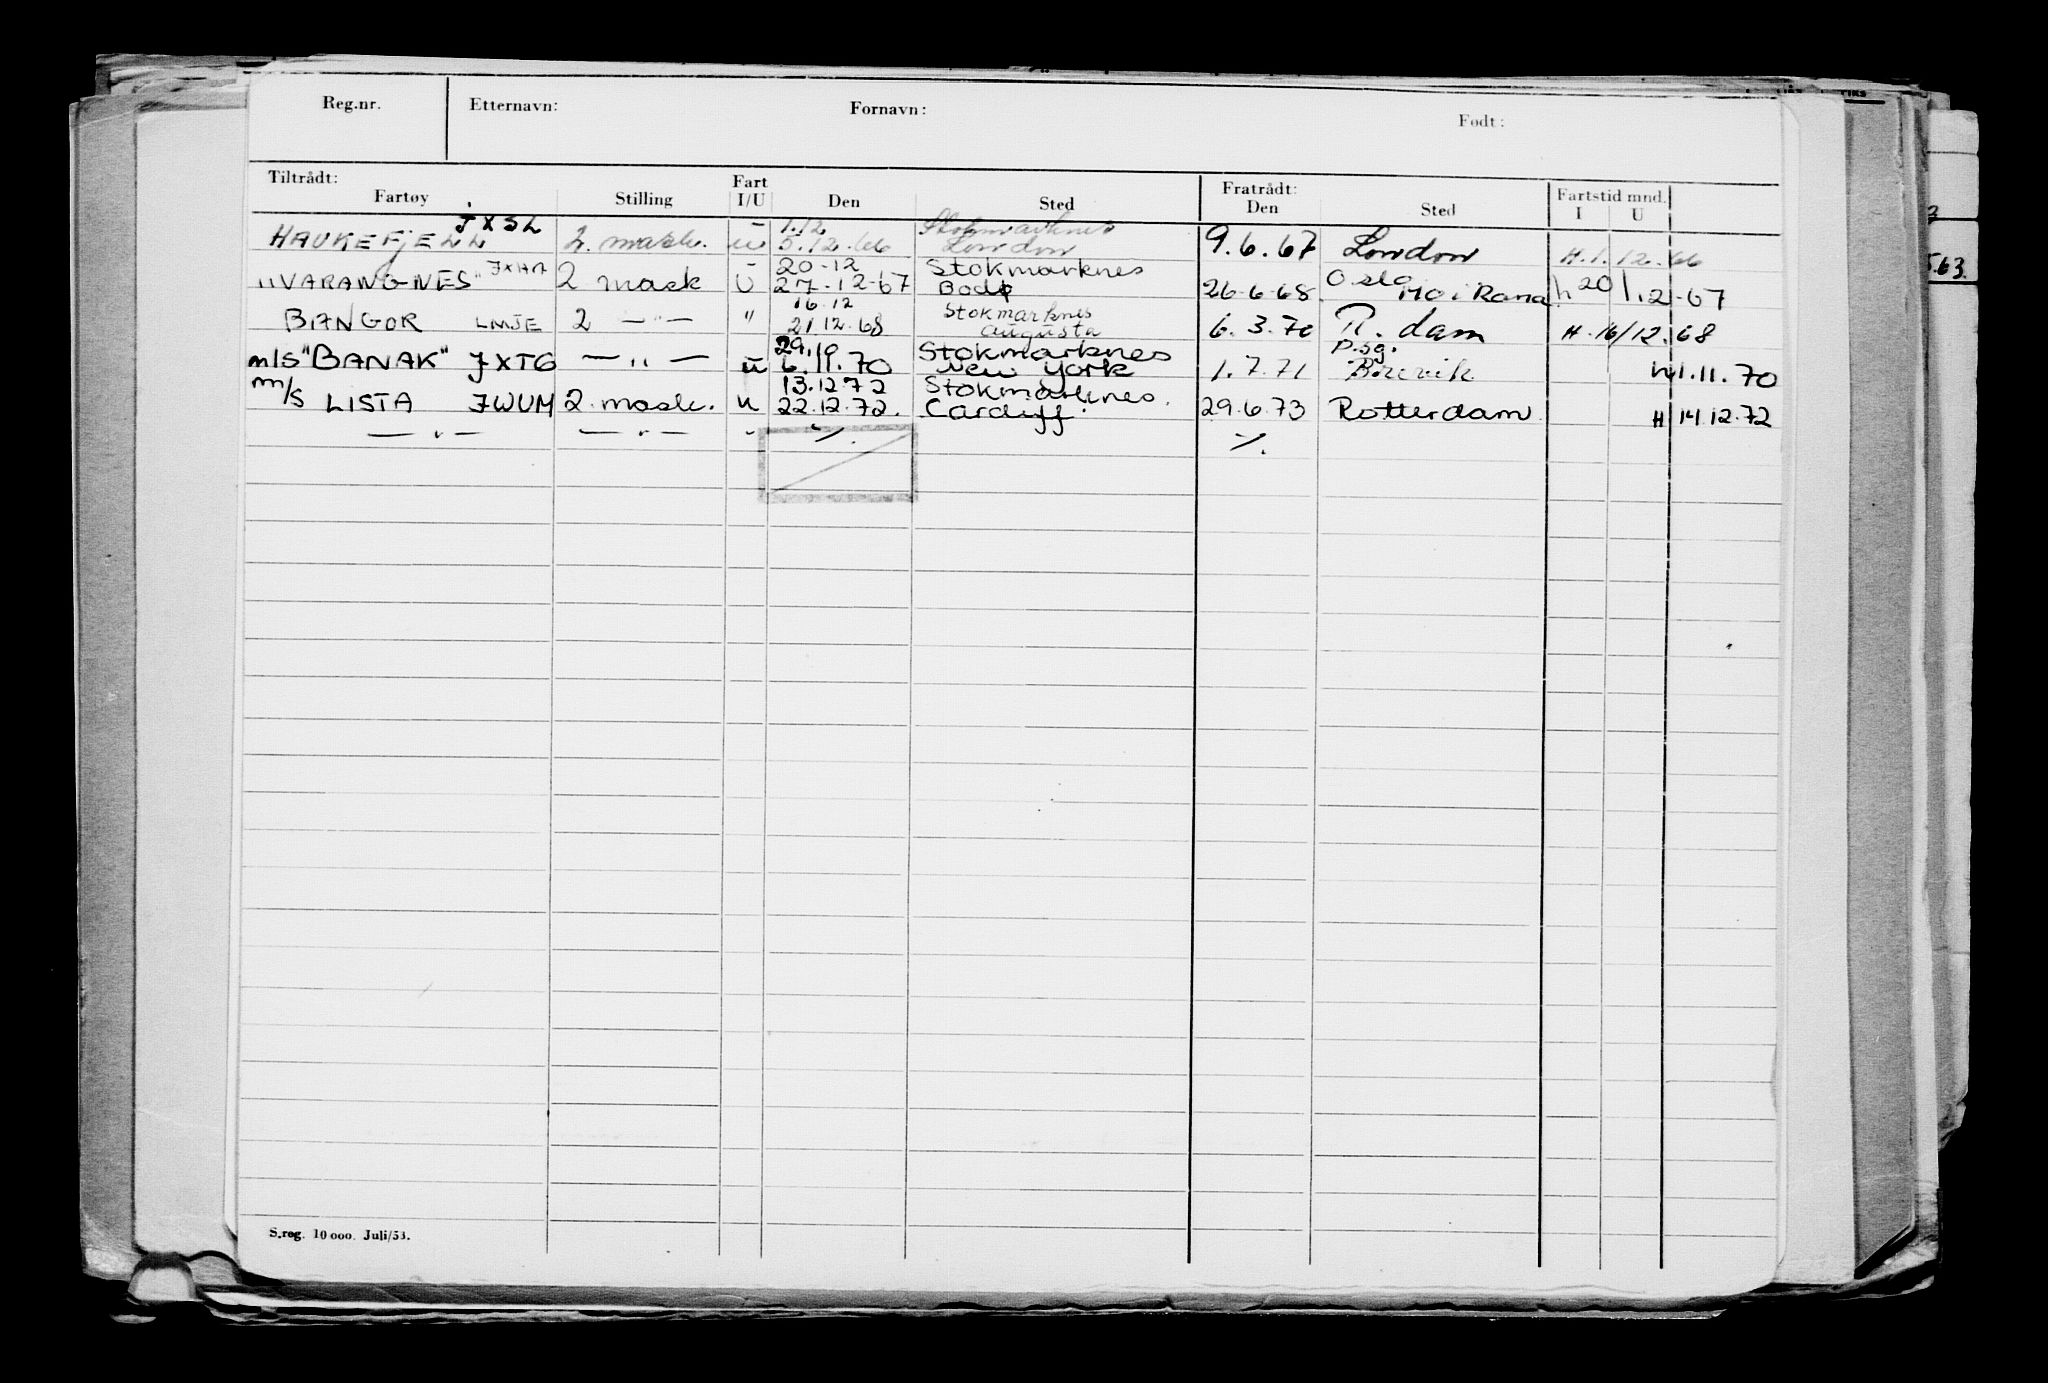 Reg.nr. Etternavn: Fornavn: Født:
Tiltrådt: Fratrådt: Fartstid mnd.
Fartøy Stilling Fart I/U Den Sted Den Sted I U
HAUKEFJELL JXSL 2. mask. u 1.12 Stokmarknes
5.12.66 London 9.6.67 London H.1.12.66
"VARANGNES" JXHA 2 mask U 20-12 Stokmarknes Oslo
27-12-67 Bodø 26-6-68 Mo i Rana h 20/12-67
BANGOR LMJE 2 — " — " 16.12 Stokmarknes
21.12.68 Augusta 6.3.70 R.dam H. 16/12.68
m/s "BANAK" JXTG — " — u 29.10 Stokmarknes p.sg.
6.11.70 New York 1.7.71 Brevik H 1.11.70
m/s LISTA JWUM 2. mask. u 13.12.72 Stokmarknes.
22.12.72. Cardiff. 29.6.73 Rotterdam H 14.12.72
— " — — " — " ٪. ٪.
S.reg. 10 000. Juli/53.
5.63.